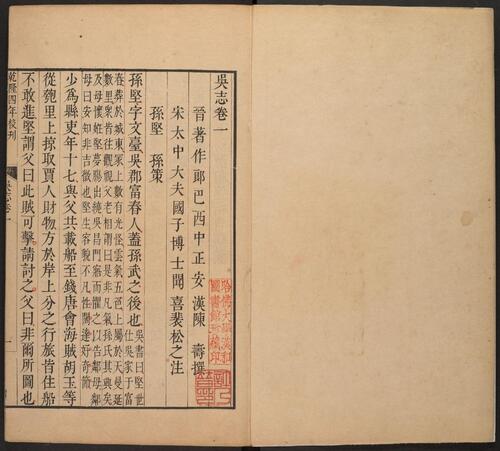 吳志卷一
晉著作郎巴西中正安漢陳 壽撰
宋太中大夫國子博士聞喜裴松之注
孫堅 孫策
孫堅字文臺吳郡富春人蓋孫武之後也
吳書曰堅世
仕吳家于富
春葬於城東冢上數有光怪雲氣五色上屬於天曼延
數里衆皆往觀視父老相謂曰是非凡氣孫氏其興矣
及母懷姙堅夢腸出繞吳昌門寤而懼之以告鄰母鄰
母曰安知非吉徵也堅生容貌不凡性闊達好奇節
少爲縣吏年十七與父共載船至錢唐會海賊胡玉等
從匏里上掠取賈人財物方於岸上分之行旅皆住船
不敢進堅謂父曰此賊可擊請討之父曰非爾所圖也
乾隆四年校刊
吳志卷一
一
哈佛大學漢和
圖書館珍藏印